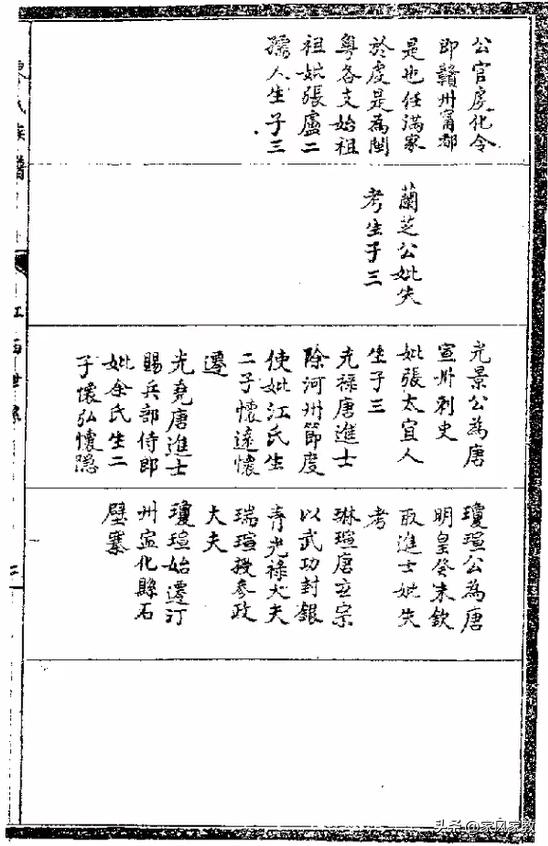 公官虔化令
即贛州甯都
是也任滿家
於虔是為閩
粤各支始祖
祖妣張盧二
孺人生子三
蘭芝公妣失
考生子三
光景公為唐
宣州刺史
妣張太宜人
生子三
光祿唐進士
除河州節度
使妣江氏生
二子懷遠懷
遷
光堯唐進士
賜兵部侍郎
妣余氏生二
子懷弘懷隠
瓊瑄公為唐
明皇癸未欽
取進士妣失
考
琳瑄唐玄宗
以武功封銀
青光祿大夫
瑞瑄授參政
大夫
瓊瑄始遷汀
州寍化縣石
壁寨
氏族譜
江西世系
二
头条@家风家教